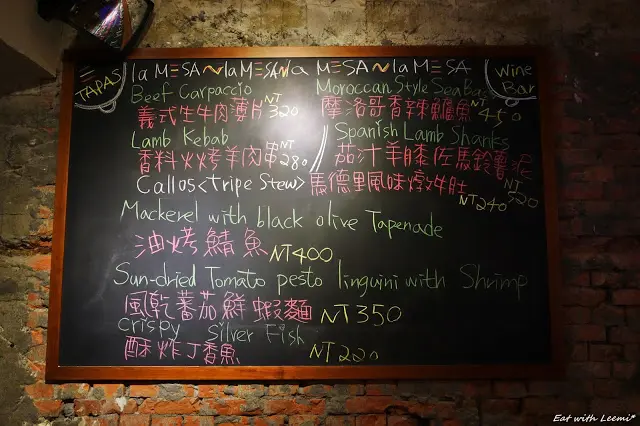 TAPAS
la MESA la MESA la MESA la MESA
Wine Bar
Beef Carpaccio
義式生牛肉薄片 NT 320
Moroccan Style Sea Bass
摩洛哥香辣鱸魚 NT 450
Lamb Kebab
香料火烤羊肉串 NT 280
Spanish Lamb Shanks
茄汁羊膝佐馬鈴薯泥 NT 520
Callos <Tripe Stew> 馬德里風味燉牛肚 NT 240
Mackerel with black olive Tapenade
油烤鯖魚 NT 400
Sun-dried Tomato pesto linguini with Shrimp
風乾蕃茄鮮蝦麵 NT 350
crispy Silver Fish
酥炸丁香魚 NT 220
Eat with Leemi*